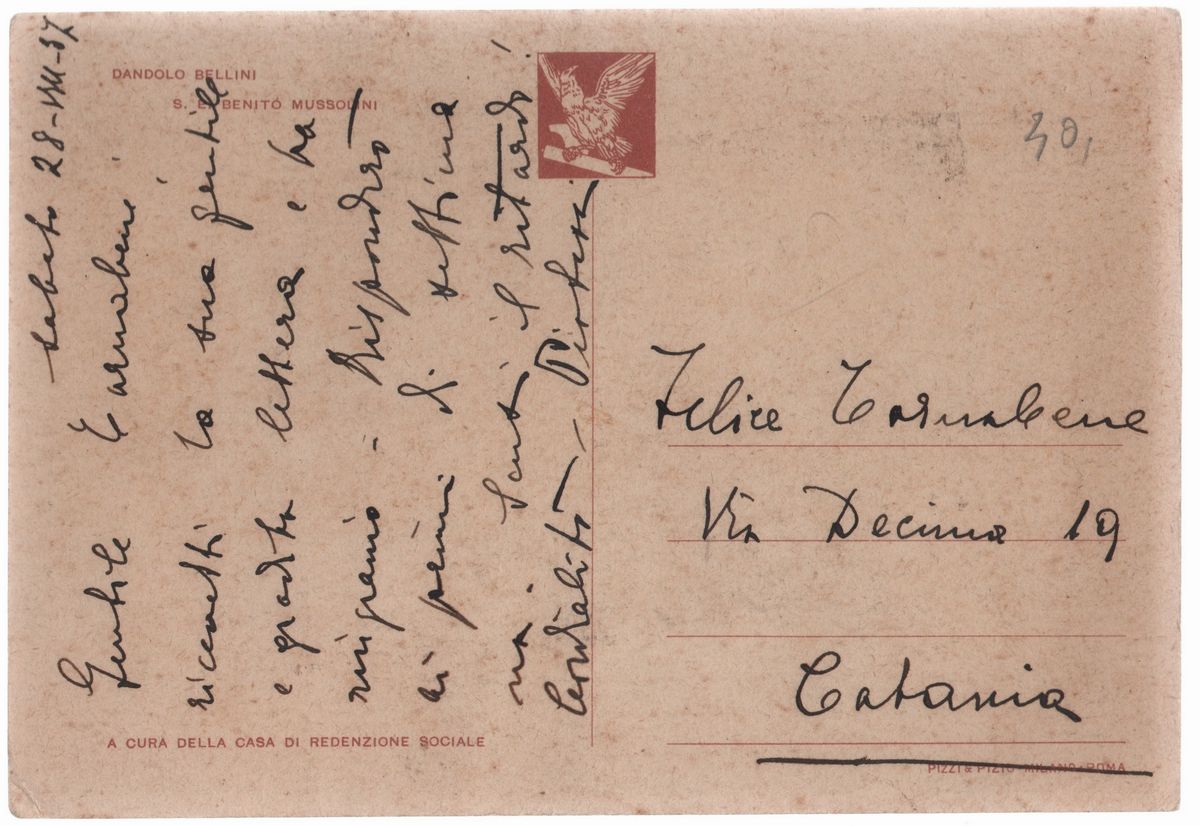 DANDOLO BELLINI
S. E. BENITO MUSSOLINI
sabato 28-VIII-37
Gentile Tornabene
ricevetti la sua gentile
e gradita lettera e La
ringrazio - Risponderò
ai primi di settima
na. Scusi il ritardo!
Cordialità -
A CURA DELLA CASA DI REDENZIONE SOCIALE
40,
Felice Tornabene
Via Decima 19
Catania
PIZZI & PIZIO - MILANO-ROMA